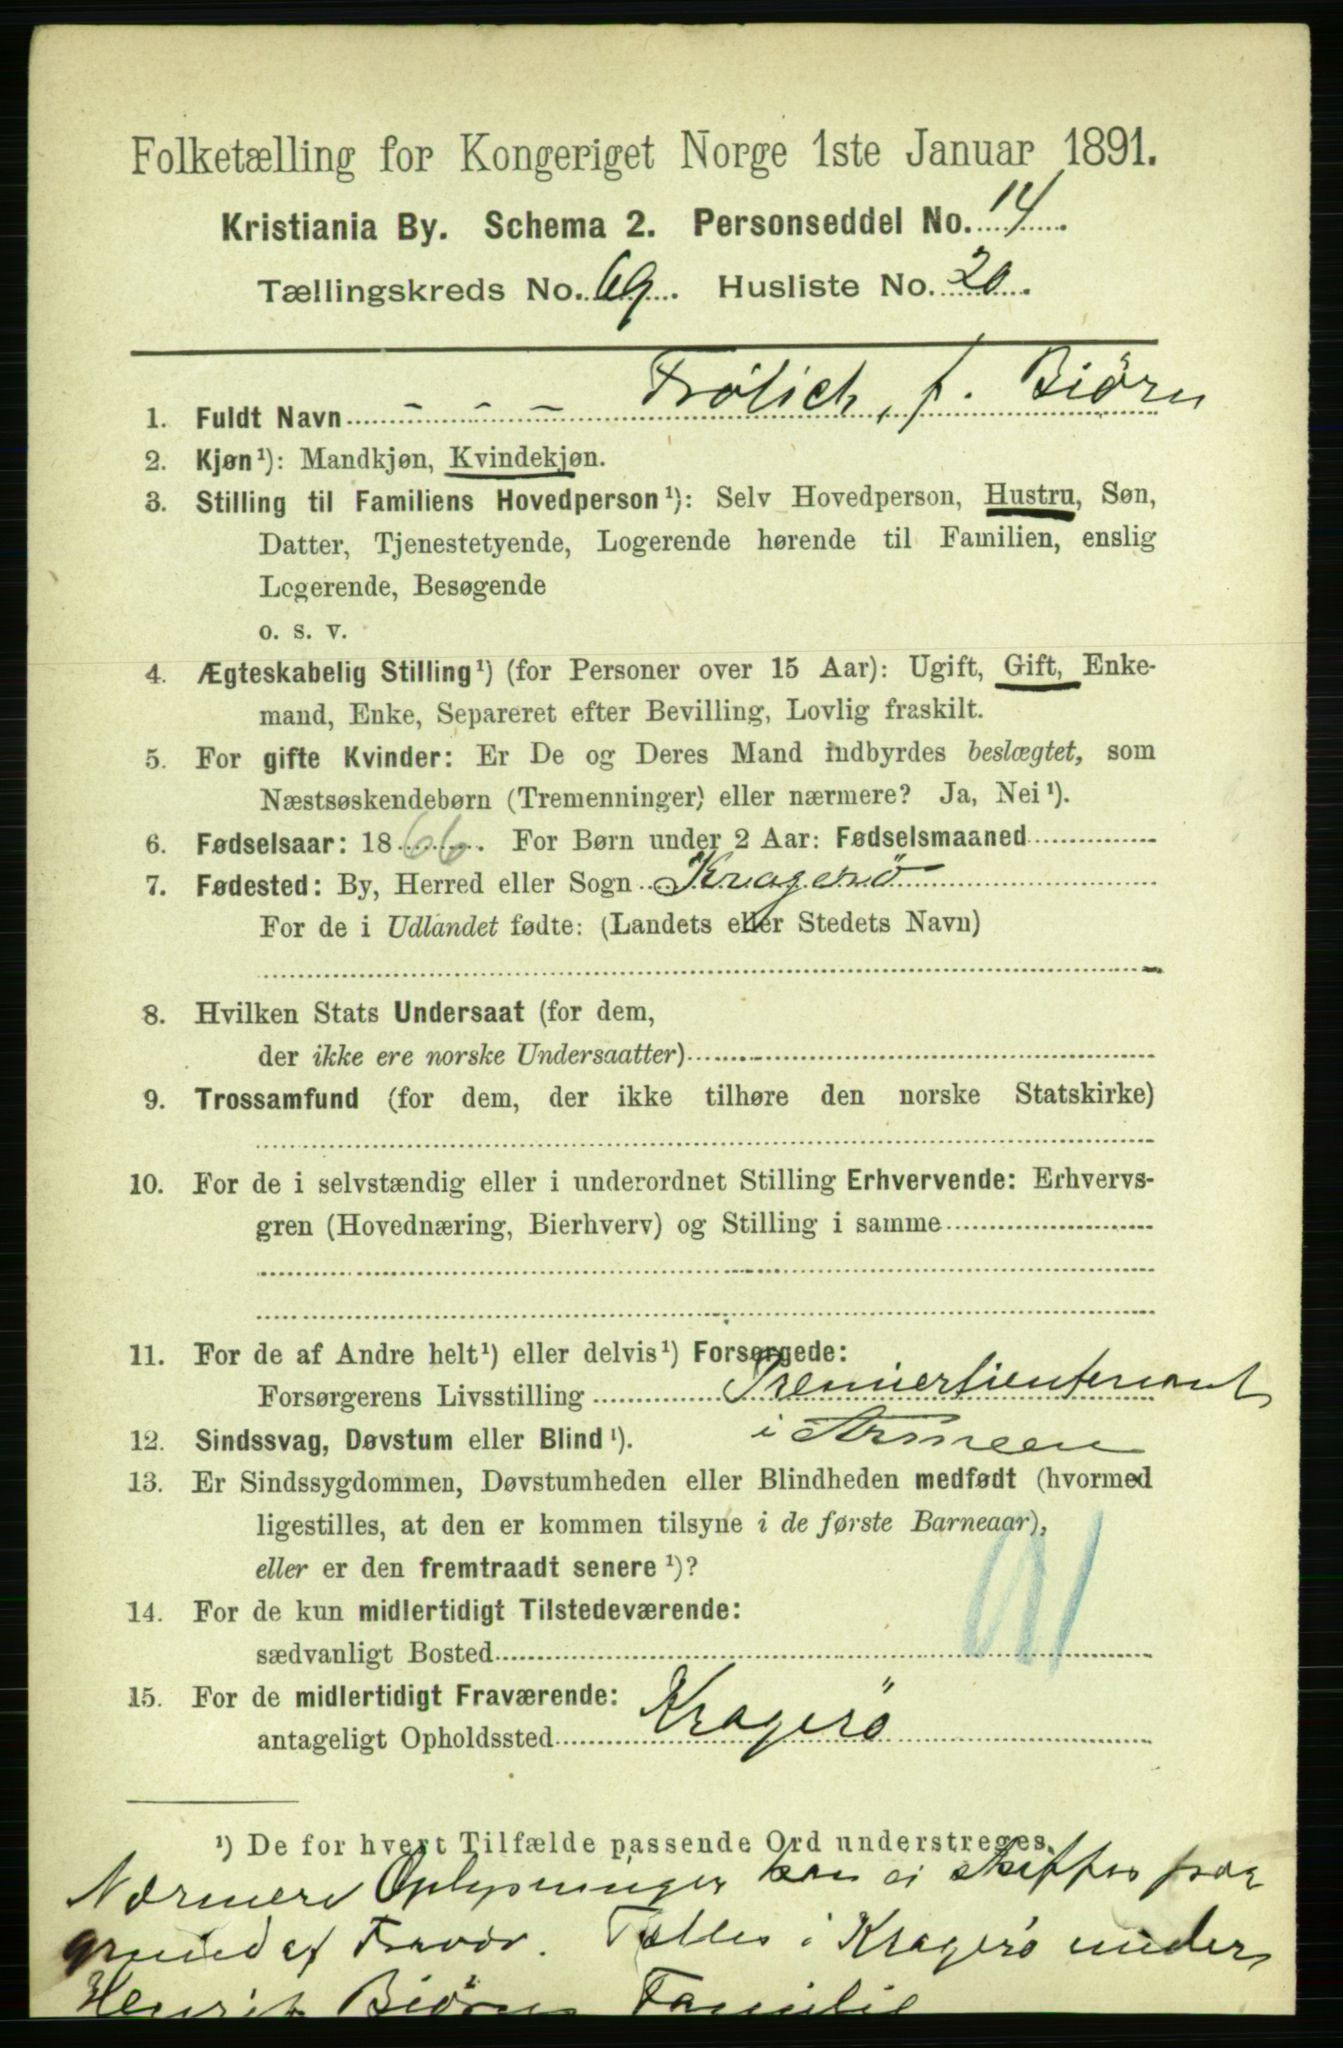 Folketælling for Kongeriget Norge 1ste Januar 1891.
Kristiania By. Schema 2. Personseddel No. 14
Tællingskreds No. 69. Husliste No. 20.
1. Fuldt Navn - - - Frölich, f. Biörn
2. Kjøn¹): Mandkjøn, Kvindekjøn.
3. Stilling til Familiens Hovedperson¹): Selv Hovedperson, Hustru, Søn,
Datter, Tjenestetyende, Logerende hørende til Familien, enslig
Logerende, Besøgende
o. s. v.
4. Ægteskabelig Stilling¹) (for Personer over 15 Aar): Ugift, Gift, Enke-
mand, Enke, Separeret efter Bevilling, Lovlig fraskilt.
5. For gifte Kvinder: Er De og Deres Mand indbyrdes beslægtet, som
Næstsøskendebørn (Tremenninger) eller nærmere? Ja, Nei¹).
6. Fødselsaar: 1866. For Børn under 2 Aar: Fødselsmaaned
7. Fødested: By, Herred eller Sogn Kragerö
For de i Udlandet fødte: (Landets eller Stedets Navn)
8. Hvilken Stats Undersaat (for dem,
der ikke ere norske Undersaatter)
9. Trossamfund (for dem, der ikke tilhøre den norske Statskirke)
10. For de i selvstændig eller i underordnet Stilling Erhvervende: Erhvervs-
gren (Hovednæring, Bierhverv) og Stilling i samme
11. For de af Andre helt¹) eller delvis¹) Forsørgede:
Forsørgerens Livsstilling Premierlieutenant
i Armeen
12. Sindssvag, Døvstum eller Blind¹).
13. Er Sindssygdommen, Døvstumheden eller Blindheden medfødt (hvormed
ligestilles, at den er kommen tilsyne i de første Barneaar),
eller er den fremtraadt senere¹)?
14. For de kun midlertidigt Tilstedeværende:
sædvanligt Bosted
15. For de midlertidigt Fraværende:
antageligt Opholdssted Kragerö
¹) De for hvert Tilfælde passende Ord understreges.
Nærmere Oplysninger kan ei skaffes paa
grund af Fravær. Tælles i Kragerö under
Henrik Biörns Familie